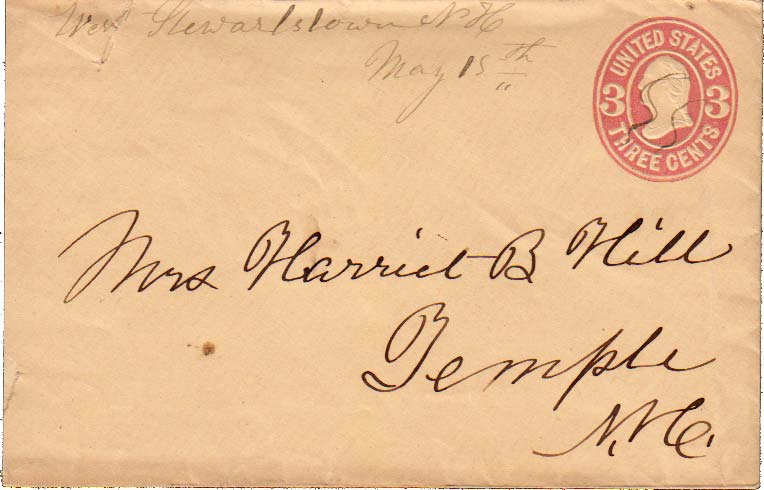 West Stewartstown N H
May 15th
UNITED STATES
3 3
THREE CENTS
Mrs Harriet B Hill
Temple
N. H.